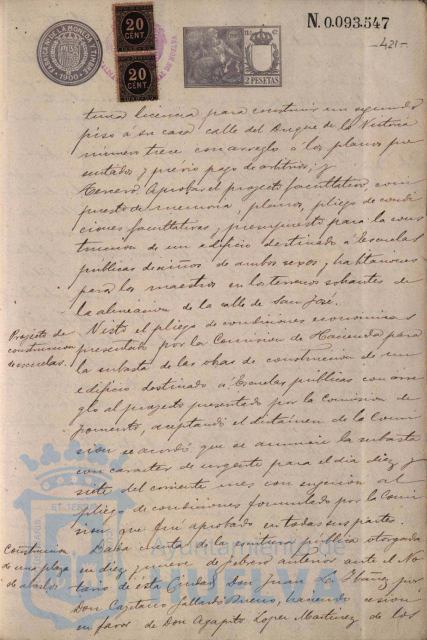 N. 0.093.547
-421-
FABRICA DE LA MONEDA Y TIMBRE
1900
20
CENT.
20
CENT.
2 PESETAS
tuna licencia para construir un segundo
piso á su casa calle del Duque de la Victoria
número trece con arreglo á los planos pre
sentados y previo pago de arbitrios; y
Tercero. Aprobar el proyecto facultativo com
puesto de memoria, planos, pliego de condi
ciones facultativas, y presupuesto para la cons
trucción de un edificio destinado á Escuelas
públicas de niños de ambos sexos, y habitaciones
para los maestros en los terrenos sobrantes de
la alineación de la calle de San José.
Proyecto de
construcción
de escuelas.
Visto el pliego de condiciones económicas
presentado por la Comisión de Hacienda para
la subasta de las obras de construcción de un
edificio destinado á Escuelas públicas con arre
glo al proyecto presentado por la Comisión de
Fomento, aceptando el dictámen de la Comi
sión se acordó que se anuncie la subasta
con carácter de urgente para el día diez y
siete del corriente mes con sujeción al
pliego de condiciones formulado por la Comi
sión, que fué aprobado en todas sus partes.
Construcción
de una plaza
de
Dada cuenta de la escritura pública otorgada
en diez y nueve de febrero anterior ante el No
tario de esta Ciudad Don Juan Ibáñez por
Don Cayetano Gallardo Bueno, haciendo cesión
en favor de Don Agapito Lopez Martinez de los
Ayuntamiento de